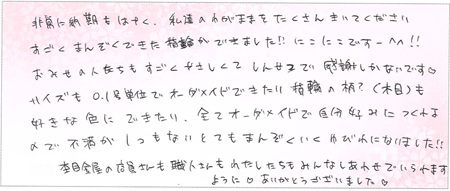 非常に納期もはやく、私達のわがままをたくさんきいてください
すごくまんぞくできた指輪ができました!! にこにこですー^^!!
おみせの人たちもすごくやさしくてしんせつで感謝しかないです♡
サイズも0.1号単位でオーダーメイドできたり指輪の柄?(木目)も
好きな色にできたり、全てオーダメイドで自分好みにつくれる
ので不満が1つもないとてもまんぞくいくゆびわになりました!!
杢目金屋の店員さんも職人さんもわたしたちもみんなしあわせでいられます
ように♡ ありがとうございました♡